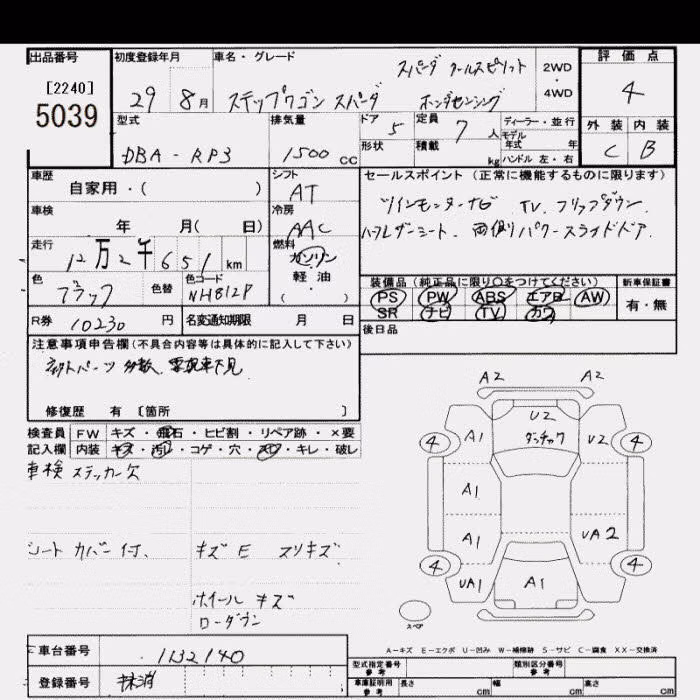 出品番号 初度登録年月 車名・グレード 評価点
[2240]
5039
29 8月 ステップワゴン スパーダ スパーダ クールスピリット ホンダセンシング
2WD・4WD
4
外装 内装
C B
型式 排気量 ドア 定員 ディーラー・並行
DBA-RP3 1500 CC 5 7人
形状 積載 kg
モデル年式 年
ハンドル 左・右
車歴 シフト セールスポイント (正常に機能するものに限ります)
自家用・( ) AT
ツインモニターナビ TV. フリップダウン
車検 年 月( 日) 冷房 AAC
ハーフレザーシート. 両側パワースライドドア.
走行 12万2千651km 燃料 ガソリン・軽油・( )
色 ブラック 色替 色コード NH812P
装備品 (純正品に限り○をつけてください) 新車保証書
PS PW ABS エアB AW 有・無
SR ナビ TV カワ
R券 10230円 名変通知期限 月 日
後日品
注意事項申告欄 (不具合内容等は具体的に記入して下さい)
修復歴 有 [箇所 ]
検査員 FW キズ・飛石・ヒビ割・リペア跡・×要
記入欄 内装 キズ・汚レ・コゲ・穴・スレ・キレ・破レ
車検ステッカー欠
シートカバー付. キズ E スリキズ
ホイールキズ
ローダウン
A2 A2
4 A1 U2 U2 4
A1
A1 UA2
4 UA1 A1 4
スペア
A-キズ E-エクボ U-凹み W-補修跡 S-サビ C-腐食 XX-交換済
車台番号 1132140
登録番号 抹消
型式指定番号 参考 類別区分番号 参考
車庫証明用 参考 長さ cm 幅 cm 高さ cm